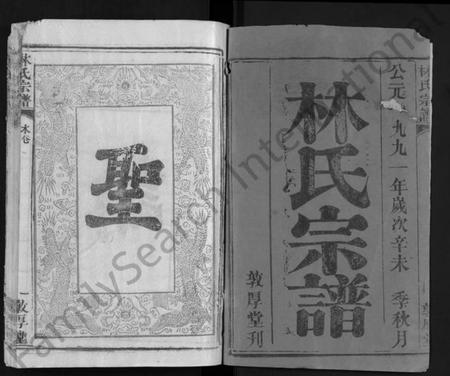 林氏宗譜
公元一九九一年歲次辛未 季秋月
林氏宗譜
敦厚堂刊
聖
林氏宗譜
木卷
敦厚堂
FamilySearch International